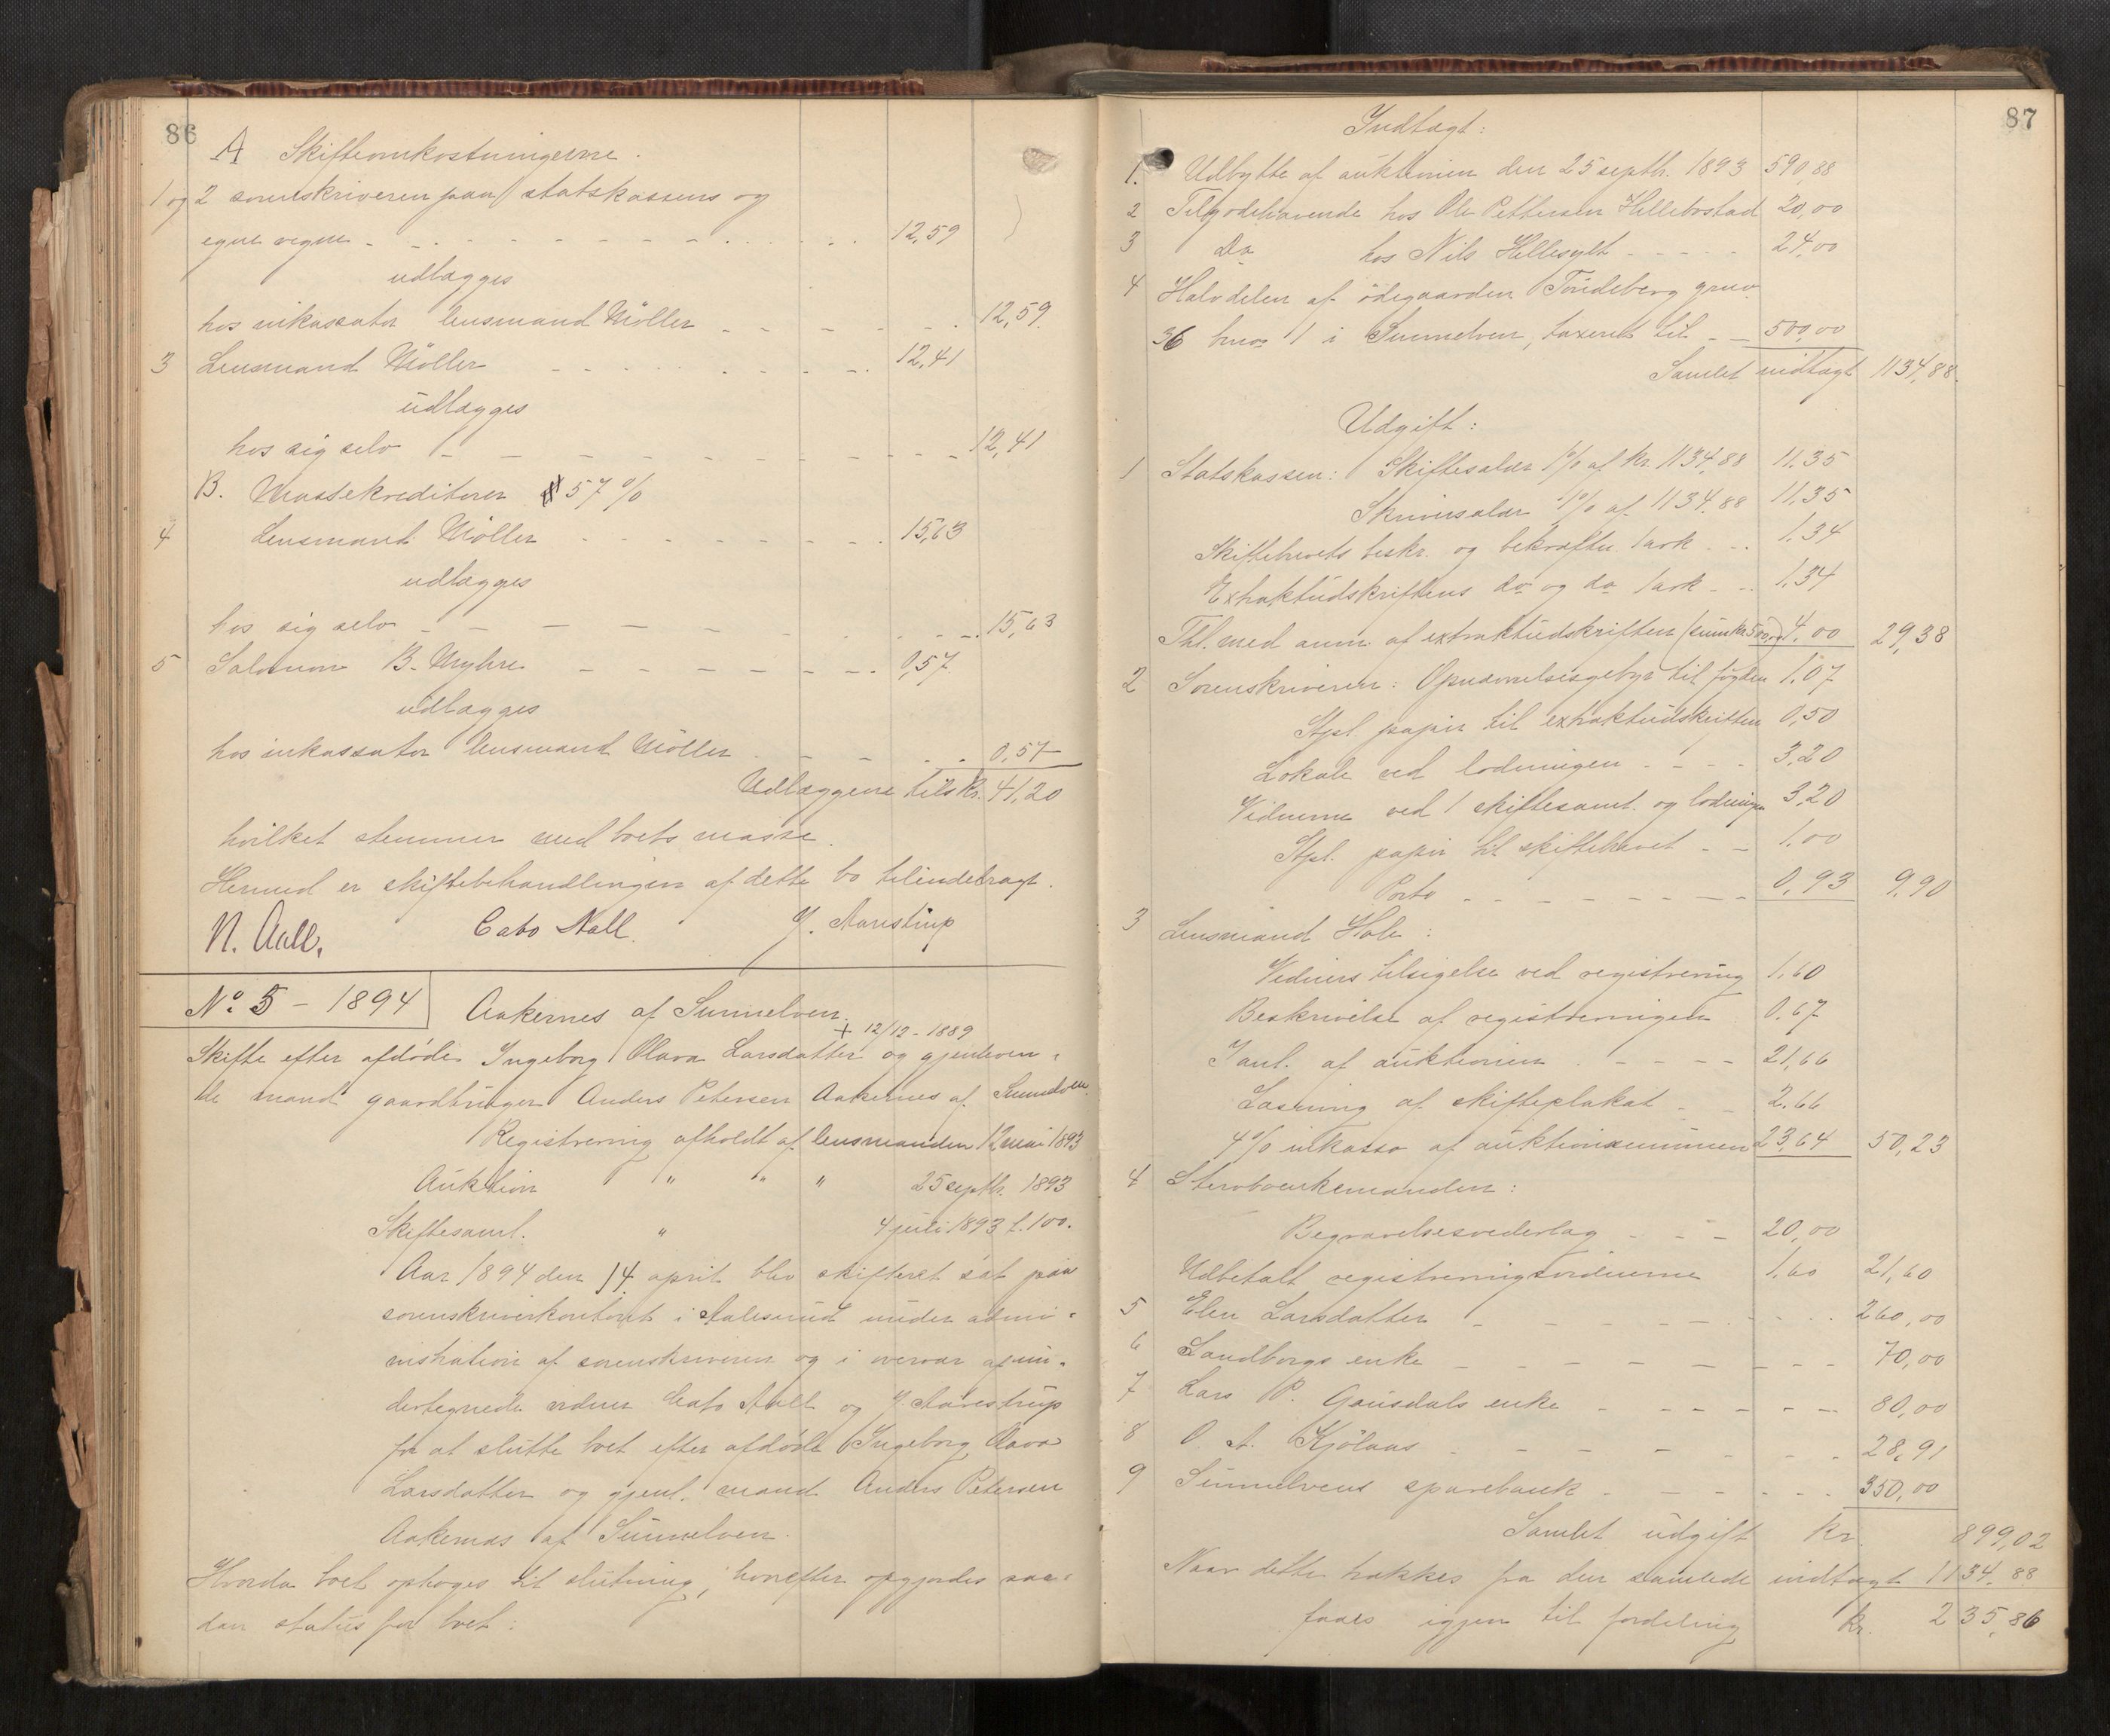 86
A Skifteomkostningerne.
1 og 2 sorenskriveren paa statskassens og
egne vegne - - - 12,59
udlægges
hos inkassator lensmand Möller - - - 12,59
3 Lensmand Möller - - - 12,41
udlægges
hos sig selv - - - 12,41
B. Massekreditorer 57 %
4 Lensmand Möller - - - 15,63
udlægges
hos sig selv - - - 15,63
5 Salomon B. Myhre - - - 0,57
udlægges
hos inkassator lensmand Möller - - - 0,57
Udlæggene tils Kr. 41,20
hvilket stemmer med boets masse.
Hermed er skiftebehandlingen af dette bo tilendebragt.
N. Aall. Cato Aall. J. Aarestrup
No. 5 - 1894 Aakernes af Sunnelven.
+ 12/12 - 1889
Skifte efter afdöde Ingeborg Olava Larsdatter og gjenleven-
de mand gaardbruger Anders Petersen Aakernes af Sunnelven
Registrering afholdt af lensmanden 12 mai 1893
Auktion " " " 25 septbr. 1893
Skiftesaml. " 4 juli 1893 f. 100.
Aar 1894 den 14 april blev skifteret sat paa
sorenskriverkontoret i Aalesund under admi-
nistration af sorenskriveren og i overvær af un-
dertegnede vidner Cato Aall og J. Aarestrup
for at slutte boet efter afdöde Ingeborg Olava
Larsdatter og gjenl. mand Anders Petersen
Aakernes af Sunnelven.
Hvorda boet optoges til slutning, hvorefter opgjordes saa-
dan status for boet:
87
Indtægt:
1. Udbytte af auktionen den 25 septbr. 1893 590,88
2 Tilgodehavende hos Ole Pettersen Hellebostad 20,00
3 Do hos Nils Hellesylt - - - 24,00
4 Halvdelen af ödegaarden Töudeberg gnrv.
36 brno 1 i Sunnelven, taxeret til - - 500,00
Samlet indtægt 1134,88.
Udgift:
1 Statskassen: Skiftesalær 1% af Kr. 1134,88 11,35
Skriversalær 1% af 1134,88 11,35
Skiftebrevets beskr. og bekræftn. 1 ark - - 1.34
Extraktudskriftens do og do 1 ark - - 1.34
Thl. med anm. af extraktudskriften (sum kr 500,00) 4.00 29,38
2 Sorenskriveren: Opnævnelsesgebyr til fogden 1.07
Stpl. papir til extraktudskriften 0,50
Lokale ved lodningen - - - 3,20
Vidnerne ved 1 skiftesaml. og lodningen 3,20
Stpl. papir til skiftebrevet - - 1.00
Porto - - - 0,93 9.90
3 Lensmand Hole:
Vidners tilsigelse ved registrering 1.60
Beskrivelse af registreringen 0.67
Saml. af auktionen - - - 21,66
Læsning af skifteplakat - - 2.66
4% inkasso af auktionssummen 23,64 50,23
4 Stervboenkemanden:
Begravelsesvederlag - - - 20,00
Udbetalt registreringsvidnerne 1.60 21,60
5 Elen Larsdatter - - - 260,00
6 Landborgs enke - - - 70,00
7 Lars P. Gausdals enke - - - 80,00
8 O. A. Kjölaas - - - 28,91
9 Sunnelvens sparebank - - - 350,00
Samlet udgift Kr. 899,02
Naar dette trækkes fra den samlede indtægt 1134.88
faaes igjen til fordeling Kr. 235,86